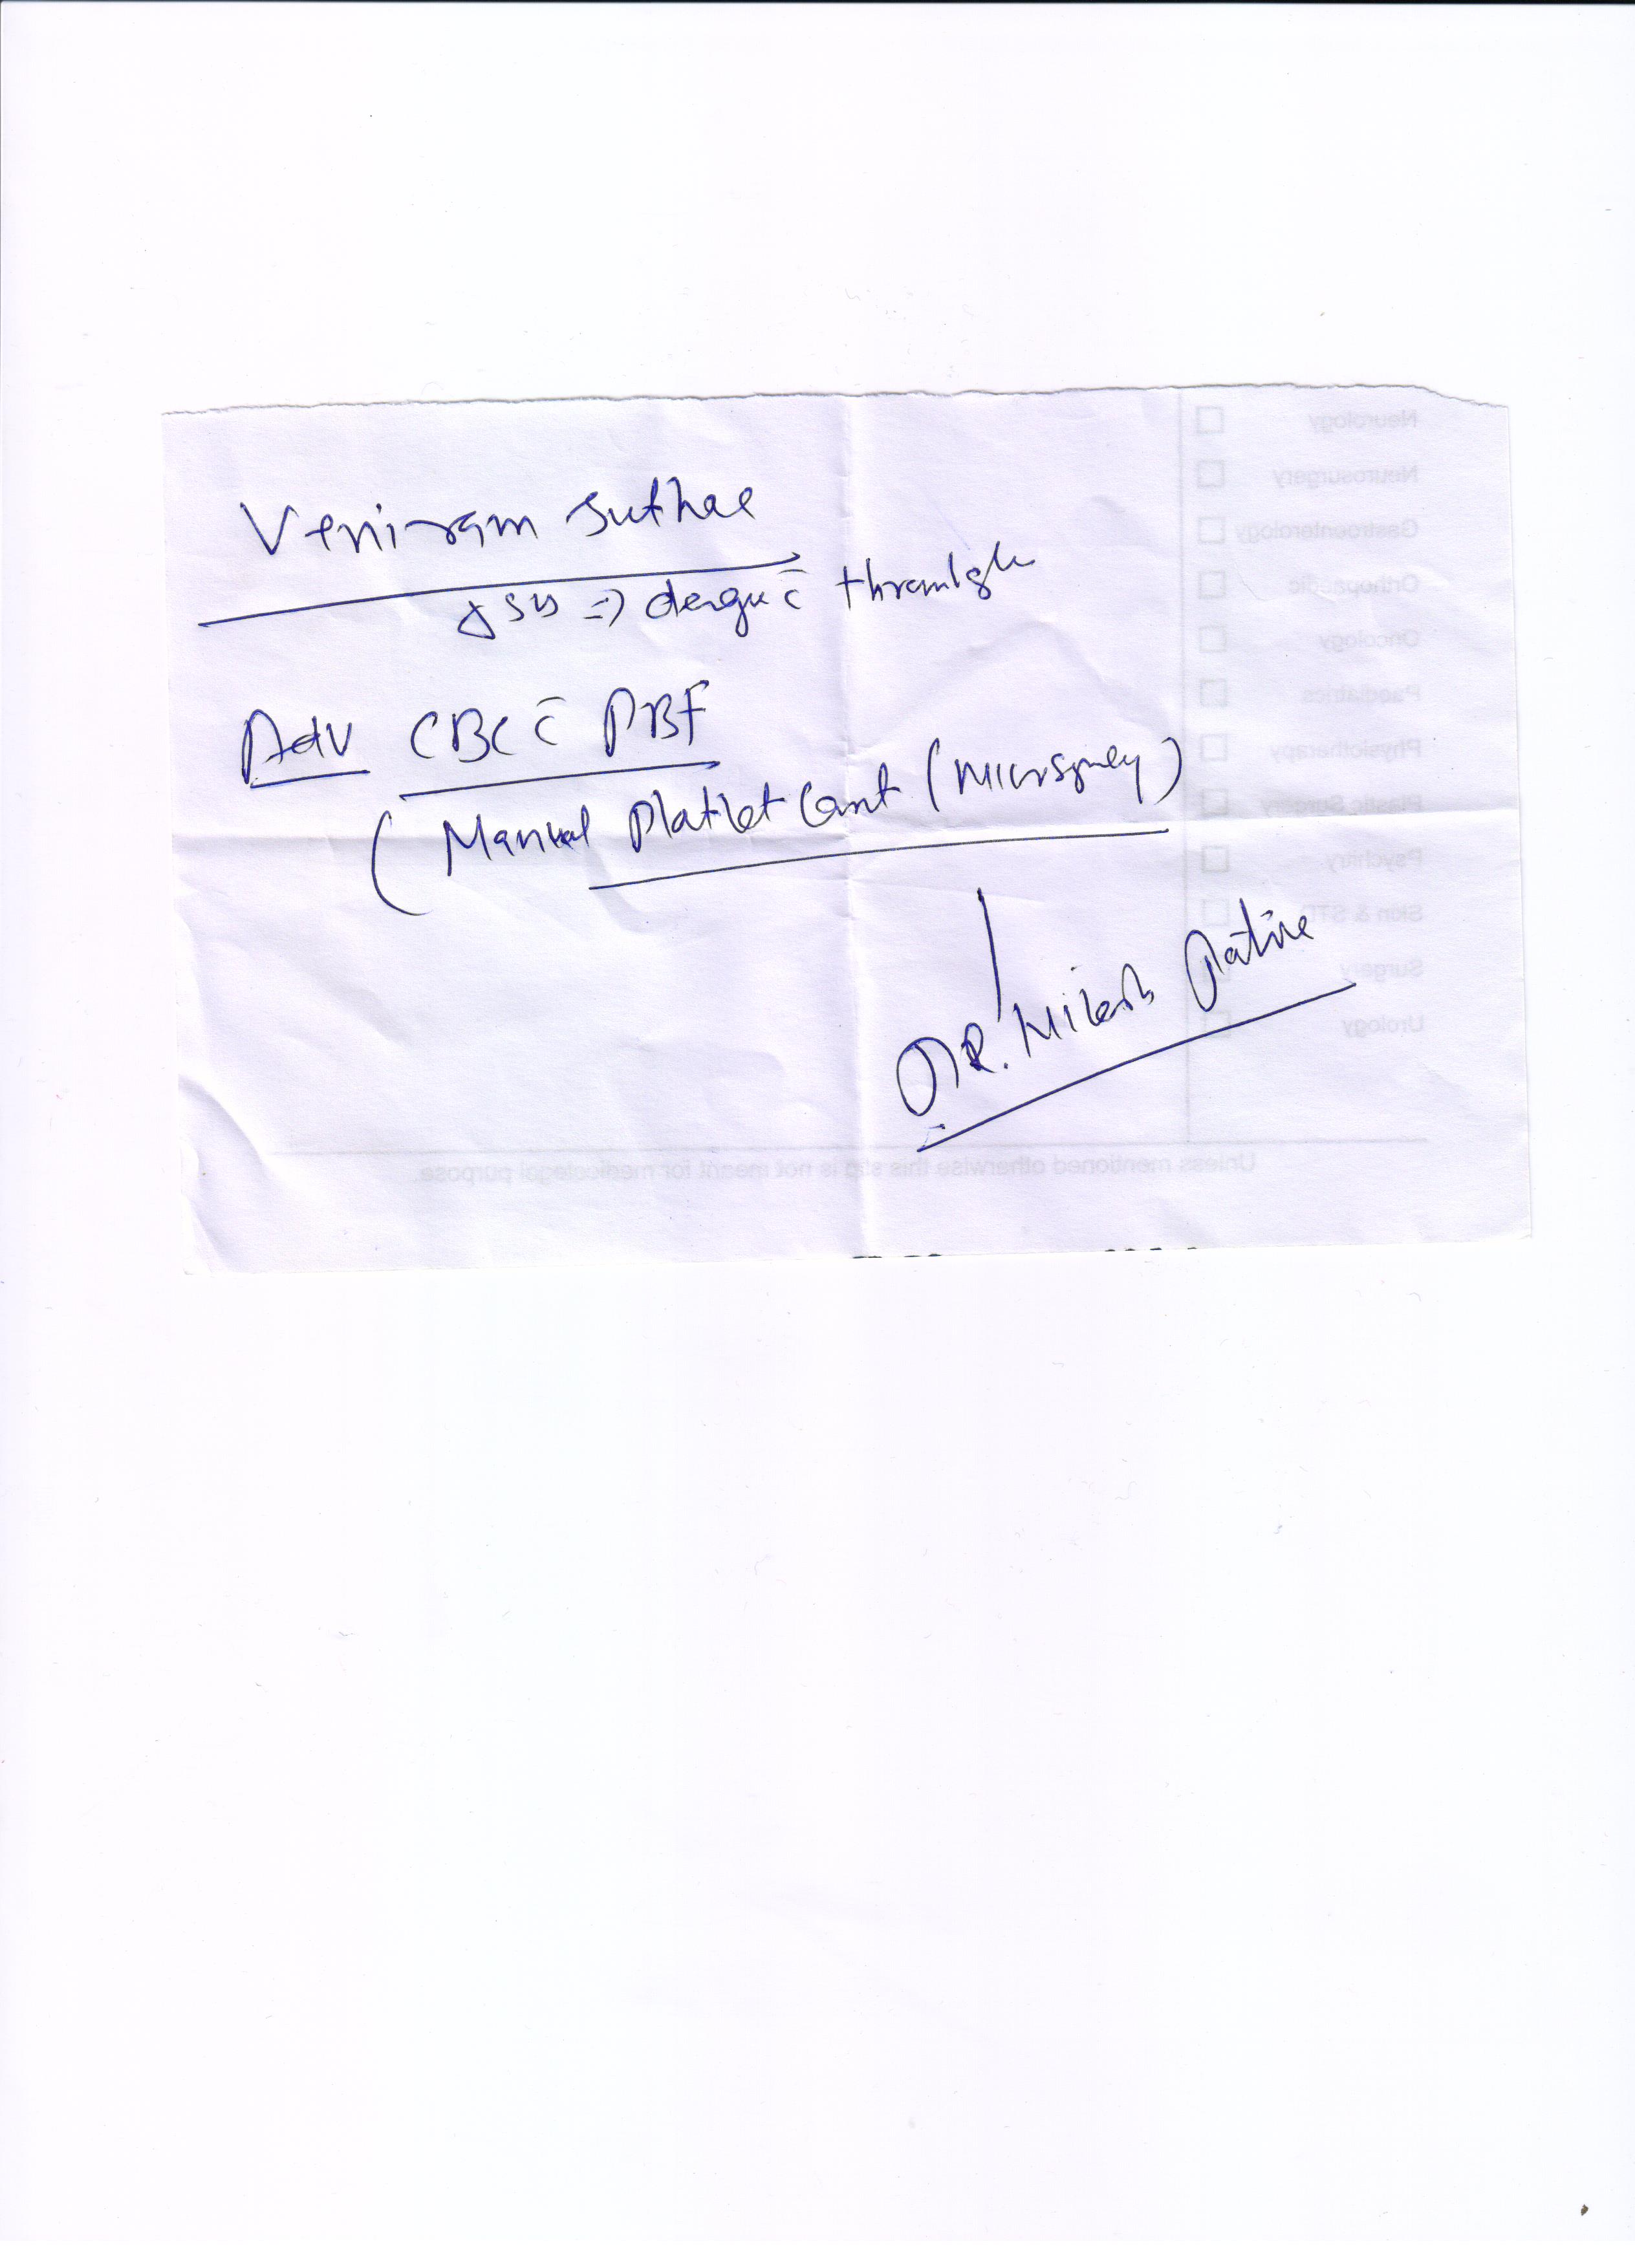 Veniram Suthar
dengue c̄
Adv CBC c̄ PBF
( Manual Platlet Count (
DR. Nilesh
Neurology
Neurosurgery
Gastroenterology
Orthopaedic
Oncology
Paediatrics
Physiotherapy
Plastic Surgery
Psychitry.
Skin & STD
Surgery
Urology
Unless mentioned otherwise this slip is not meant for medicolegal purpose.